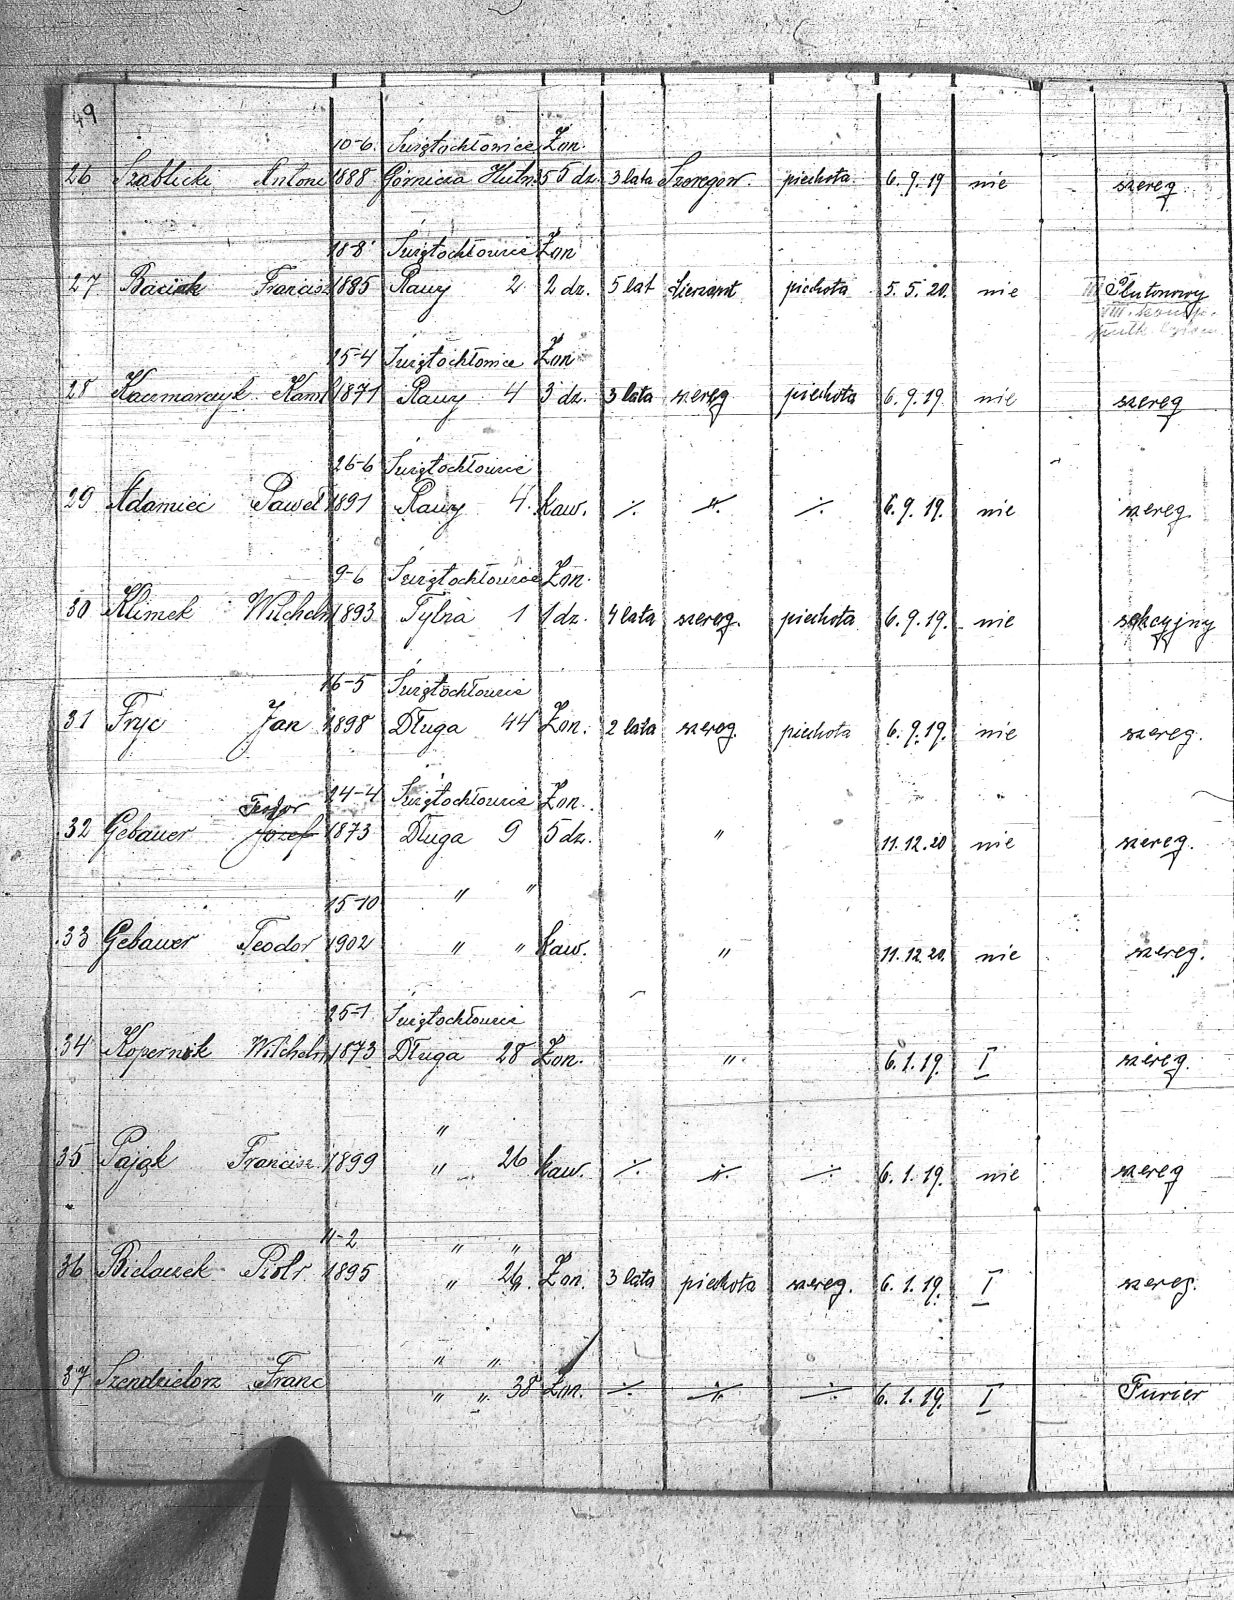 49
10-6. Świętochłowice Żon.
26 Szablicki Antoni 1888 Górnicza Hutn. 55 5 dz. 3 lata Szeregow. piechota. 6.9.19 nie szereg
18-8 Świętochłowice Żon
27 Baciok Francisz 1885 Rawy 2 2 dz. 5 lat Sierzant piechota 5.5.20. nie Plutonowy
25-4 Świętochłowice Żon
28 Kaczmarczyk Karol 1871 Rawy 4 3 dz. 3 lata szereg piechota 6.9.19. nie szereg
26-6 Świętochłowice
29 Adamiec Paweł 1891 Rawy 4. kaw. ·/· " ·/· 6.9.19. nie szereg.
9-6 Świętochłowice Żon.
30 Klimek Wilchelm 1893 Tylna 1 1 dz. 4 lata szereg. piechota 6.9.19. nie sekcyjny
16-5 Świętochłowice
31 Fryc Jan 1898 Długa 44 Żon. 2 lata szereg. piechota 6.9.19. nie szereg.
Teofor 24-4 Świętochłowice Żon.
32 Gebauer Józef 1873 Długa 9 5 dz. " 11.12.20 nie szereg.
15-10 " "
33 Gebauer Teodor 1902 " " kaw. " 11.12.20. nie szereg.
25-1 Świętochłowice
34 Kopernik Wilchelm 1873 Długa 28 Żon. " 6.1.19. I szereg.
"
35 Pająk Francisz. 1899 " 26 kaw. ·/· " ·/· 6.1.19. nie szereg
11-2 " "
36 Bielaczek Piotr 1895 " 26 " Żon. 3 lata piechota szereg. 6.1.19. I szereg.
" "
37 Szendzielorz Franc " " 38 Żon. ·/· ·/· ·/· 6.1.19. I Furier